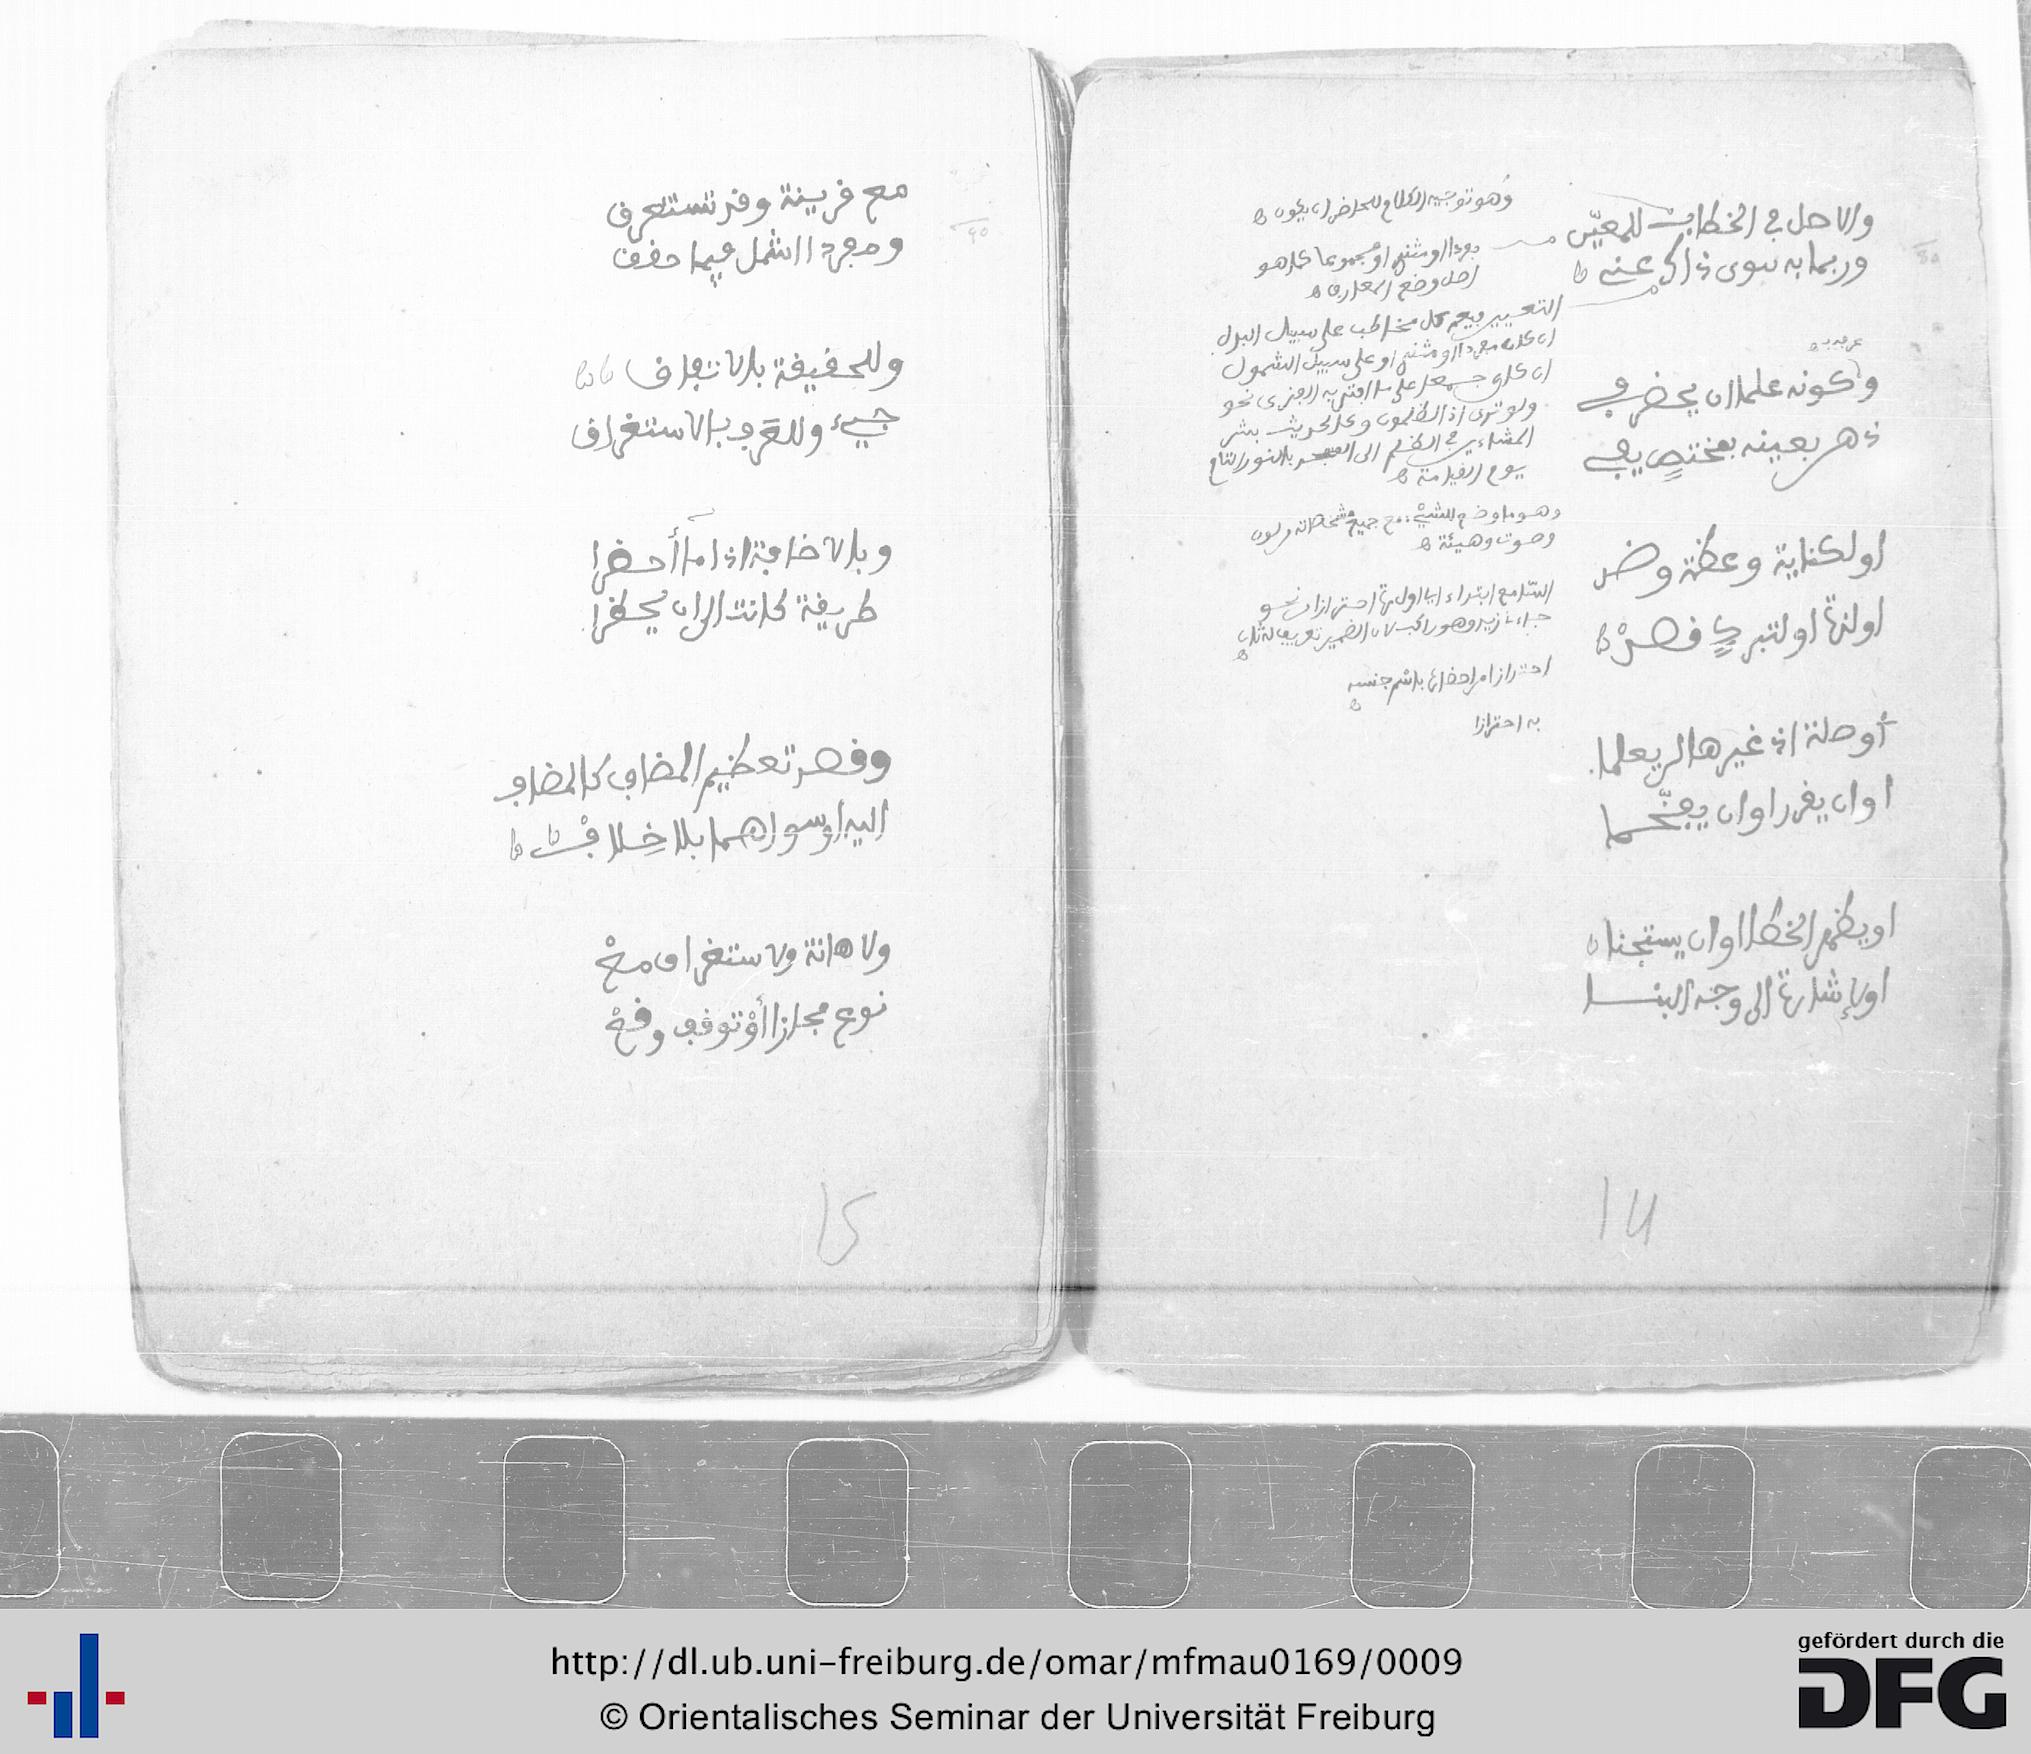 والاصل في الخطاب للمعيّن
وربما به سوى ذاك عنه
وكونه علما ان يحضر في
ذهن بعينه بمختص يفي
او لكناية وعظمة وضد
او لتها او لتبرك قصد
أو صلة اذ غيرها لن يعلما
او ان يقرر او ان يفخّما
او يظهر الخطا او ان يستهجنا
او لإشارة الى وجه البنا
وهو توجيه الكلام للحاضر ان يكون
مفردا او مثنى او مجموعا كما هو
اصل وضع المعارف
التعيين فيعم كل مخاطب على سبيل البدل
ان كان مفردا او مثنى او على سبيل الشمول
ان كان جمعا على ما
ولو ترى اذ الظلمون وكالحديث بشر
المشائين في الظلم الى بالنور التام
يوم القيامة
وهو ما وضع للشيء مع جميع مشخصاته من لون
وصوت وهيئة
السامع ابتداء اي اول مرة احترازا من نحو
جاء زيد وهو راكب لان الضمير
احترازا من احضاره باسم جنسه
به احترازا
14
مع قرينة وقد تستغرق
ومفرد اشمل فيما حققوا
وللحقيقة بلا تفاق
جيء وللفرد بالاستغراق
وبالاضافة اذا ما أحضرا
طريقة كانت الى ان يحظرا
وقصد تعظيم المضاف كالمضاف
اليه او سواهما بلا خلاف
ولاهانة ولاستغراق مع
نوع مجازا أو توقف وقع
15
http://dl.ub.uni-freiburg.de/omar/mfmau0169/0009
© Orientalisches Seminar der Universität Freiburg
gefördert durch die
DFG